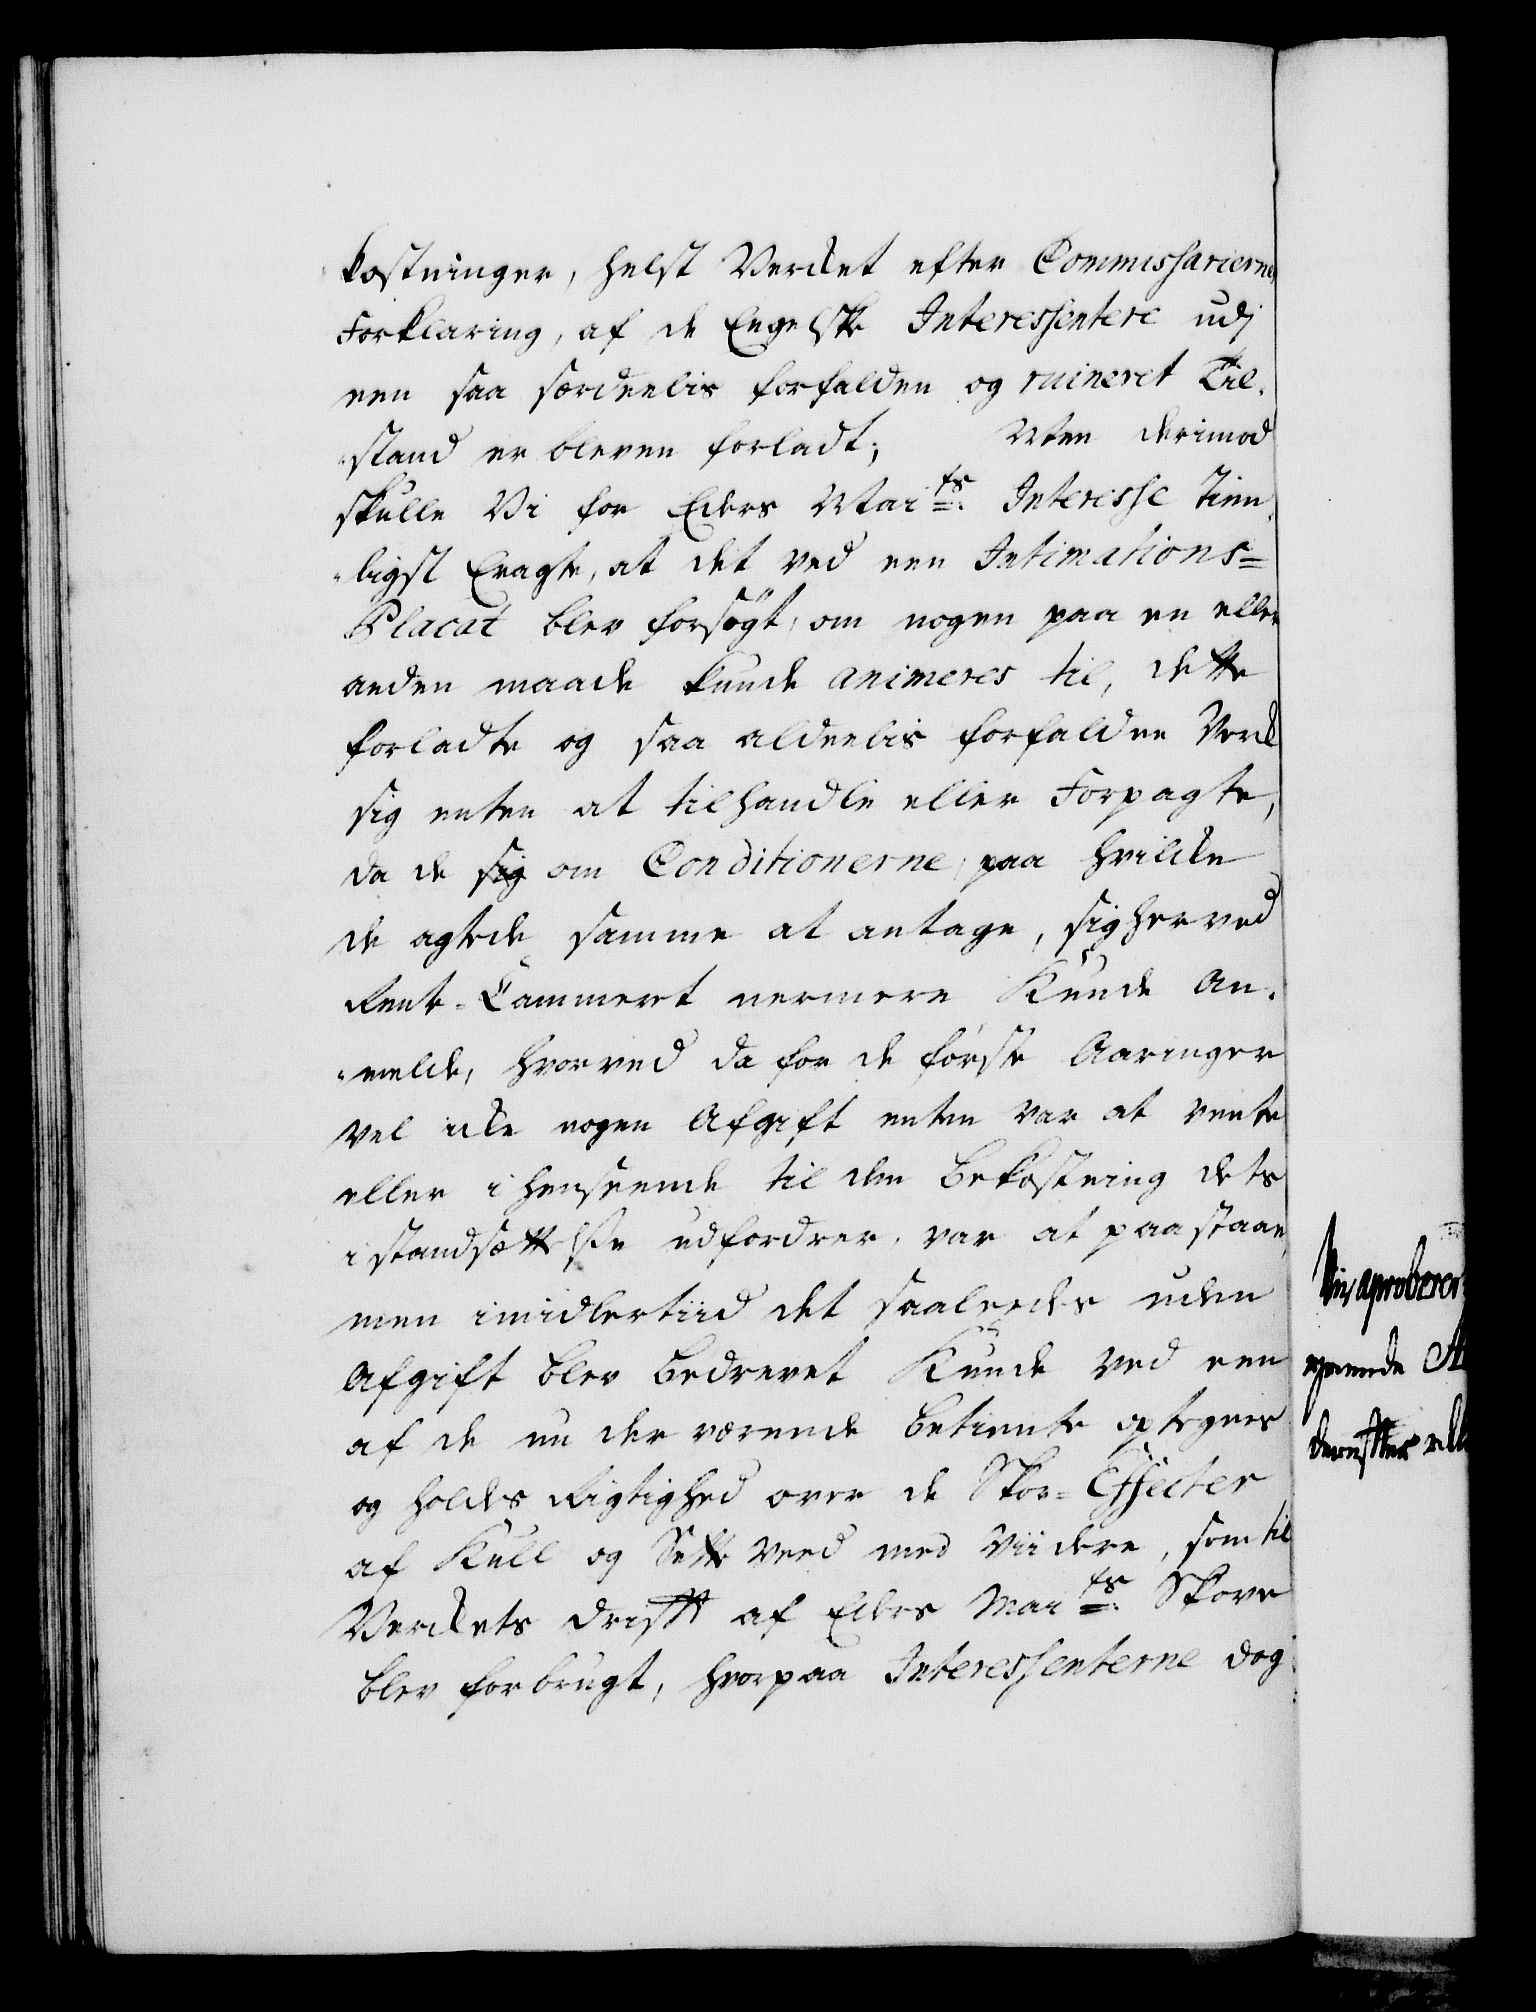 kostninger, helst Verket efter Commissariernes
Forklaring, af de Engelske Interessentere udj
een saa særdeelis forfalden og ruineret Til-
-stand er bleven forladt; Men derimod
skulle Vi for Eders Mai^ts Interesse tien-
-ligst Eragte, at det ved een Intimations-
Placat blev forsøgt, om nogen paa en eller
anden maade kunde animeres til, dette
forladte og saa aldeelis forfaldne Verk
sig enten at tilhandle eller Forpagte,
da de sig om Conditionerne paa hvilke
de agtede samme at antage, sig herved
Rente-Cammeret nermere Kunde An-
-melde, hvorved da for de første Aaringer
vel icke nogen Afgift enten var at vente
eller i henseende til den Bekostning dets
i standsættelse udfordrer, var at paastaae,
men imidlertiid det saaleedes uden
Afgift blev bedrevet Kunde ved een
af de nu der værende betiente optegnes
og holdes Rigtighed over de Skov-Effecter
af Kull og Sette Veed med Viidere, som til
Verkets drifft af Eders Mai^ts Skove
blev forbrugt, hvorpaa Interessenterne dog